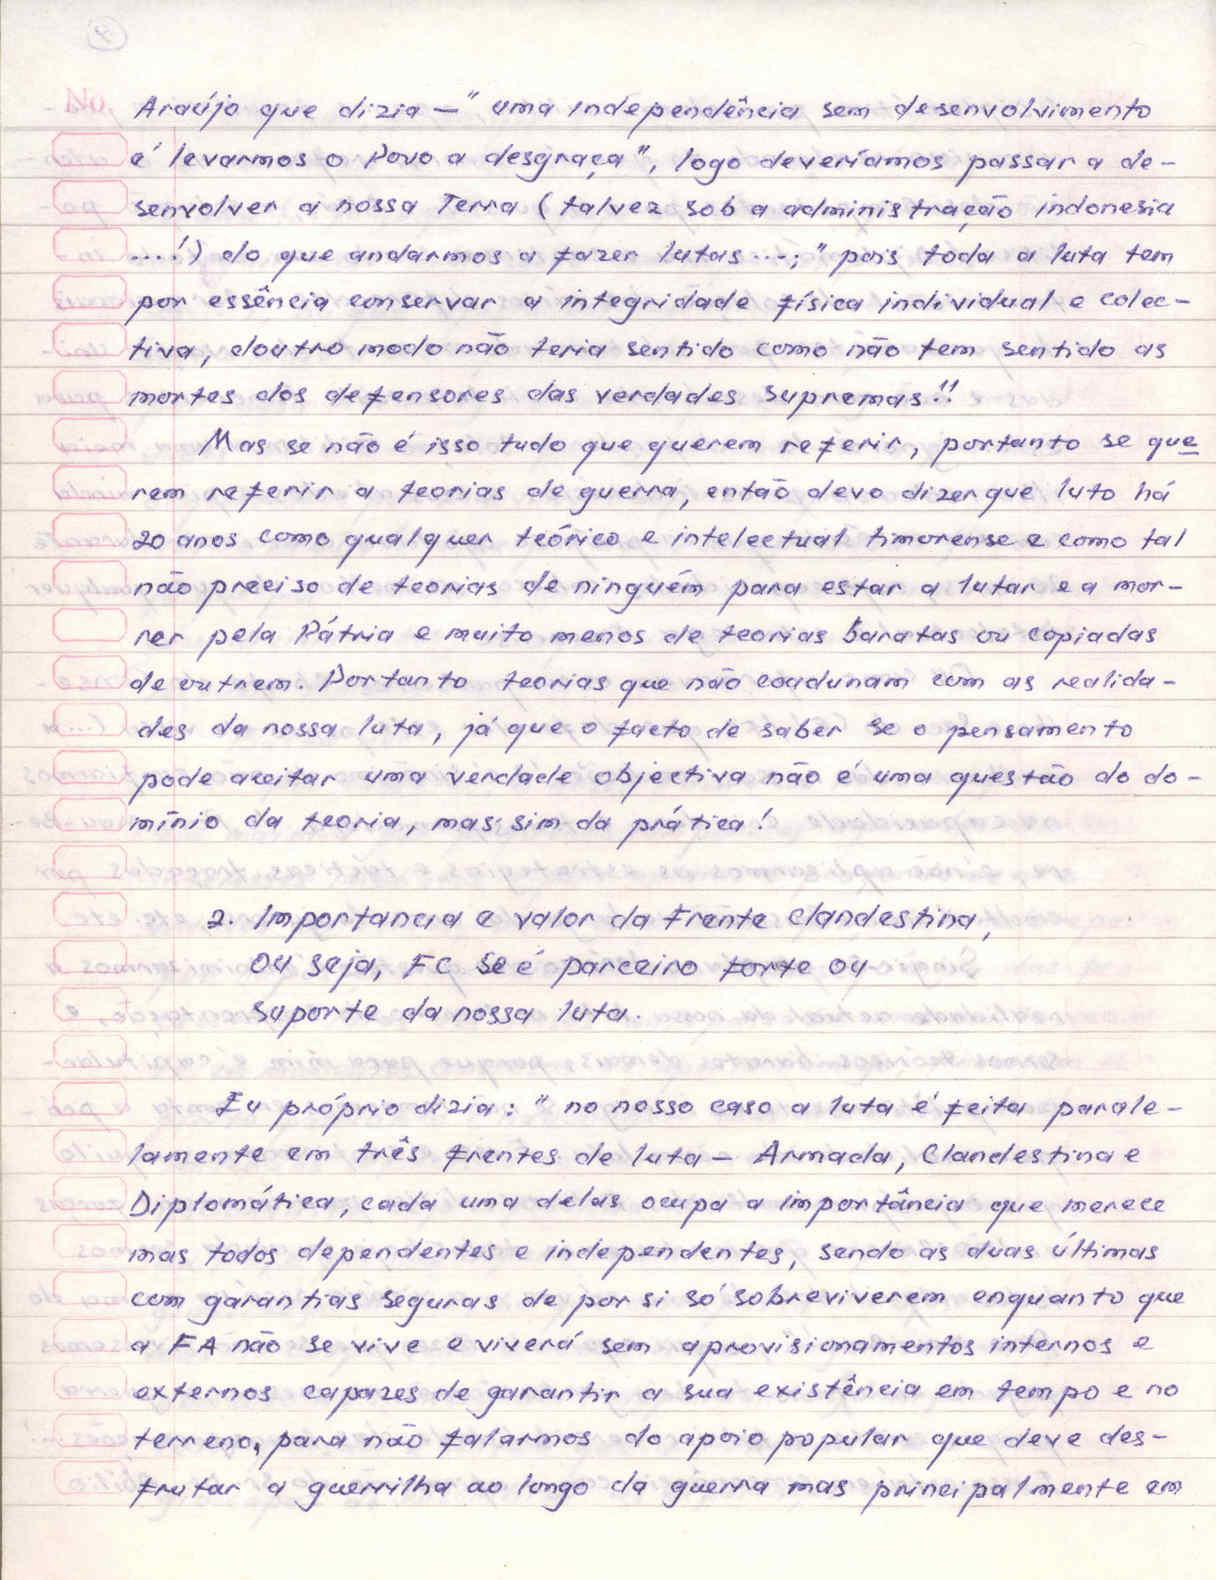 Araújo que dizia — "uma independência sem desenvolvimento
é levarmos o Povo a desgraça", logo deveríamos passar a de-
senvolver a nossa Terra (talvez sob a administração indonesia
....!) do que andarmos a fazer lutas ...; "pois toda a luta tem
por essência conservar a integridade física individual e colec-
tiva, doutro modo não teria sentido como não tem sentido as
mortes dos defensores das verdades supremas!!
Mas se não é isso tudo que querem referir, portanto se que
rem referir a teorias de guerra, então devo dizer que luto há
20 anos como qualquer teórico e intelectual timorense e como tal
não preciso de teorias de ninguém para estar a lutar e a mor-
rer pela Pátria e muito menos de teorias baratas ou copiadas
de outrem. Portanto teorias que não coadunam com as realida-
des da nossa luta, já que o facto de saber se o pensamento
pode aceitar uma verdade objectiva não é uma questão do do-
mínio da teoria, mas sim da prática!
2. Importancia e valor da Frente Clandestina,
ou seja, FC se é parceiro forte ou
suporte da nossa luta.
Eu próprio dizia: "no nosso caso a luta é feita parale-
lamente em três frentes de luta — Armada, Clandestina e
Diplomática, cada uma delas ocupa a importância que merece
mas todos dependentes e independentes, sendo as duas últimas
com garantias seguras de por si só sobreviverem enquanto que
a FA não se vive e viverá sem aprovisionamentos internos e
externos capazes de garantir a sua existência em tempo e no
terreno, para não falarmos do apoio popular que deve des-
frutar a guerrilha ao longo da guerra mas principalmente em